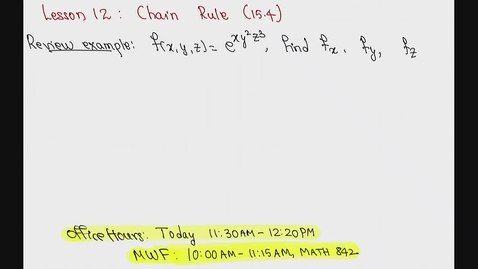 Lesson 12 : Chain Rule (15.4)
Review example: f(x,y,z) = e^{xy²z³}, find f_x, f_y, f_z
Office Hours: Today 11:30AM - 12:20PM
MWF: 10:00AM - 11:15AM, MATH 842